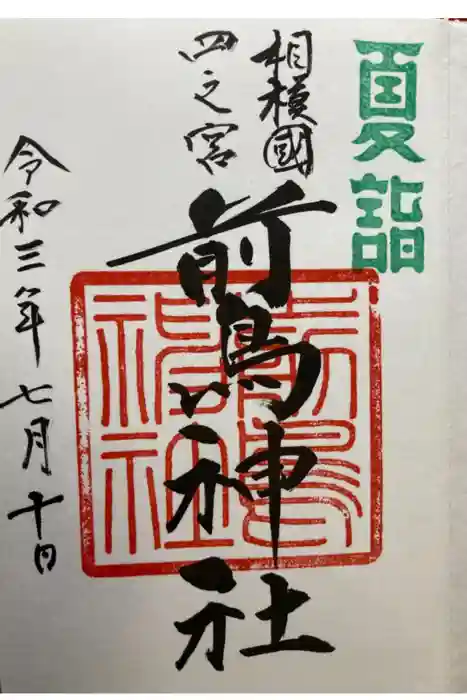 夏詣
相模國
四之宮
前鳥神社
前鳥神社
令和三年七月十日